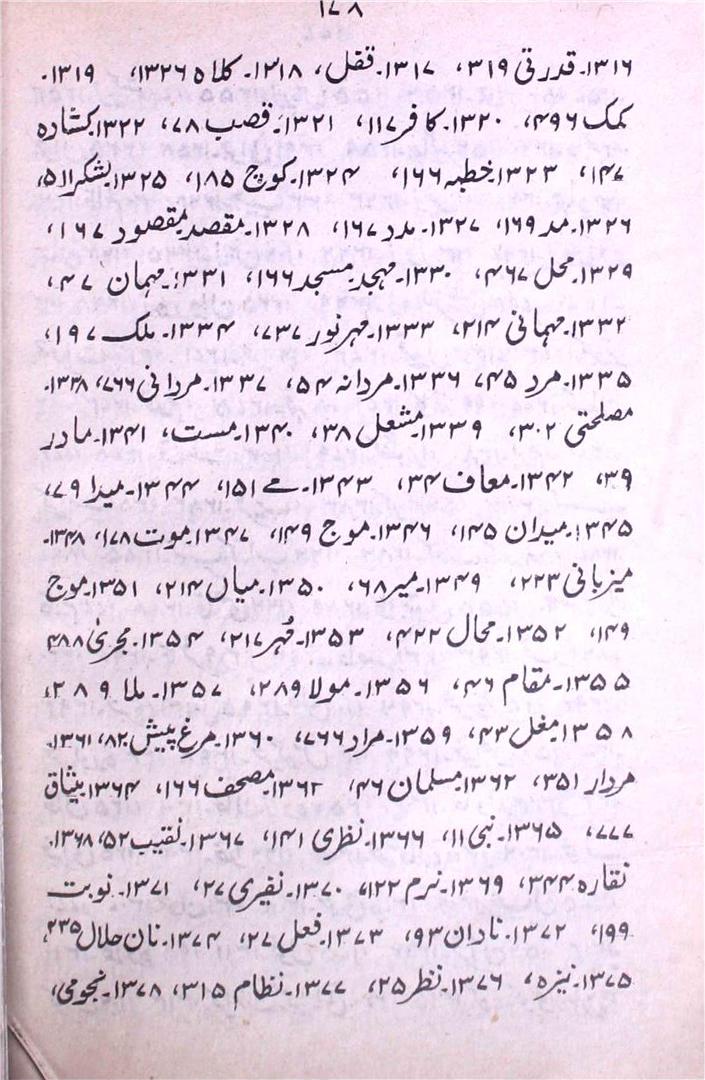 ۱۷۸
۱۳۱۶۔ قدرتی ۳۱۹، ۱۳۱۷۔ قفل، ۱۳۱۸۔ کلاہ ۱۳۲۶، ۱۳۱۹۔
کمک ۴۹۶، ۱۳۲۰۔ کافر ۱۱۷، ۱۳۲۱۔ قصب ۷۸، ۱۳۲۲۔ کشادہ
۱۴۷، ۱۳۲۳۔ خطبہ ۱۶۶، ۱۳۲۴۔ کوچ ۱۸۵، ۱۳۲۵۔ لشکر
۱۳۲۶۔ مد ۱۶۹، ۱۳۲۷۔ مدد ۱۶۷، ۱۳۲۸۔ مقصد۔ مقصود ۱۶۷،
۱۳۲۹۔ محل ۴۶۷، ۱۳۳۰۔ مہجد۔ مسجد ۱۶۶، ۱۳۳۱۔ مہمان ۴۷،
۱۳۳۲۔ مہمانی ۲۱۴، ۱۳۳۳۔ مہر نور ۷۳۷، ۱۳۳۴۔ ملک ۱۹۷،
۱۳۳۵۔ مرد ۴۵، ۱۳۳۶۔ مردانہ ۵۴، ۱۳۳۷۔ مردانی ۷۶۶، ۱۳۳۸۔
مصلحتی ۳۰۲، ۱۳۳۹۔ مشعل ۳۸، ۱۳۴۰۔ مست، ۱۳۴۱۔ مادر
۳۹، ۱۳۴۲۔ معاف ۳۴، ۱۳۴۳۔ مے ۱۵۱، ۱۳۴۴۔ میدا ۷۹،
۱۳۴۵۔ میدان ۱۴۵، ۱۳۴۶۔ موج ۱۴۹، ۱۳۴۷۔ موت ۱۷۸، ۱۳۴۸۔
میزبانی ۲۲۳، ۱۳۴۹۔ میر ۶۸، ۱۳۵۰۔ میاں ۲۱۴، ۱۳۵۱۔ موج
۱۴۹، ۱۳۵۲۔ محال ۴۲۲، ۱۳۵۳۔ مُہر ۲۱۷، ۱۳۵۴۔ مجریٰ ۴۸۸
۱۳۵۵۔ مقام ۴۶، ۱۳۵۶۔ مولا ۲۸۹، ۱۳۵۷۔ ملا ۲۸۹،
۱۳۵۸۔ مغل ۴۳، ۱۳۵۹۔ مراد ۷۶۶، ۱۳۶۰۔ مرغ پیش ۸۲، ۱۳۶۱۔
مردار ۳۵۱، ۱۳۶۲۔ مسلمان ۴۶، ۱۳۶۳۔ مصحف ۱۶۶، ۱۳۶۴۔ میثاق
۷۷۷، ۱۳۶۵۔ نبی ۱۱، ۱۳۶۶۔ نظری ۱۴۱، ۱۳۶۷۔ نقیب ۵۲، ۱۳۶۸۔
نقارہ ۳۴۴، ۱۳۶۹۔ نرم ۱۲۲، ۱۳۷۰۔ نفیری ۲۷، ۱۳۷۱۔ نوبت
۱۹۹، ۱۳۷۲۔ نادان ۹۳، ۱۳۷۳۔ فعل ۲۷، ۱۳۷۴۔ نان حلال ۲۳۵،
۱۳۷۵۔ نیزہ، ۱۳۷۶۔ نظر ۲۵، ۱۳۷۷۔ نظام ۳۱۵، ۱۳۷۸۔ نجومی،